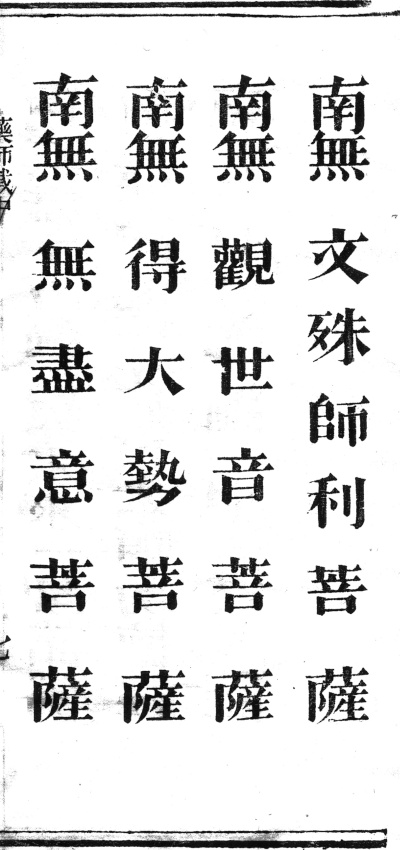 南無文殊師利菩薩
南無觀世音菩薩
南無得大勢菩薩
南無無盡意菩薩
藥師懺中